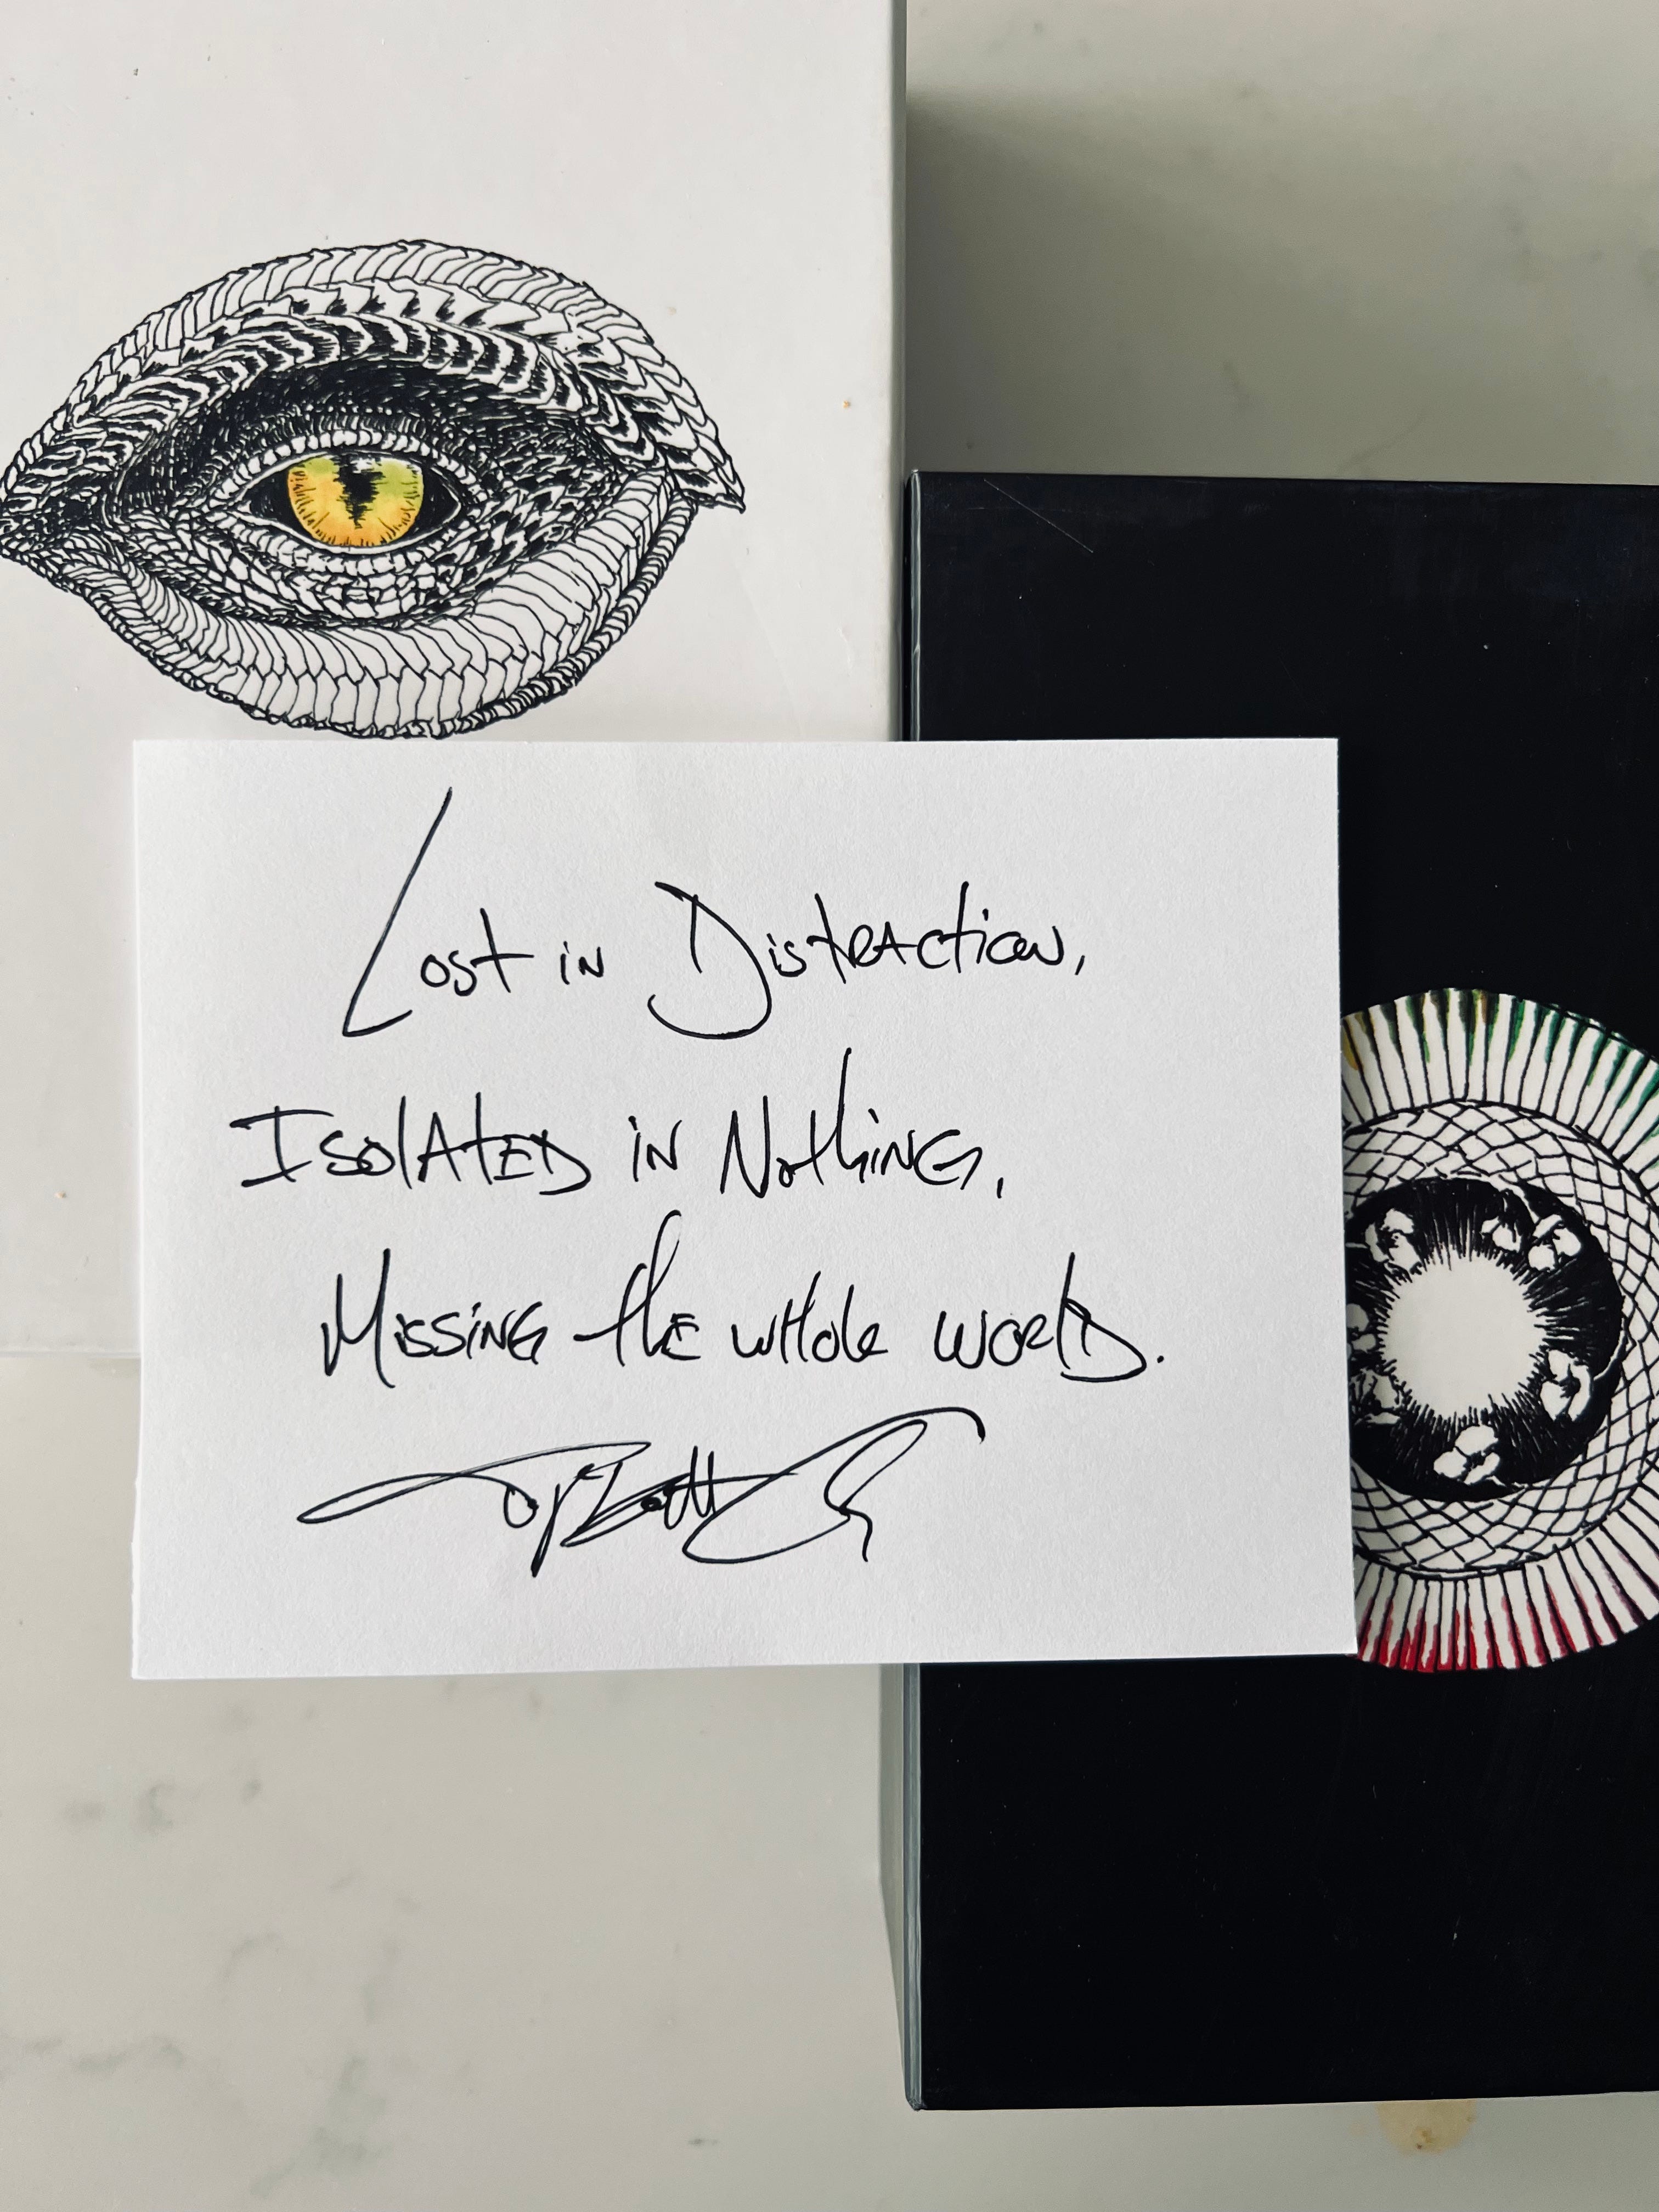 Lost in Distraction,
Isolated in Nothing,
Missing the whole world.